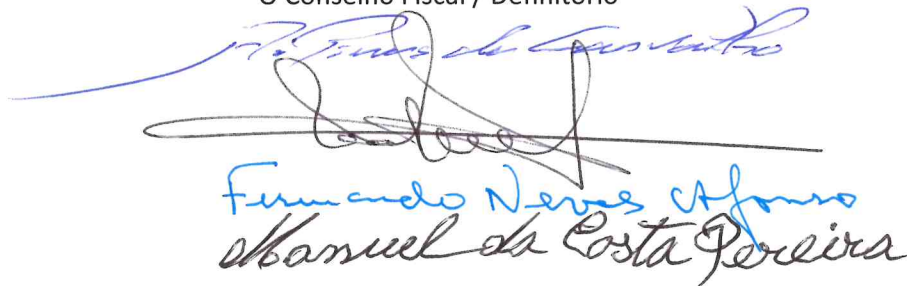 O Conselho Fiscal / Definitório
Pires de Carvalho
Fernando Neves Afonso
Manuel da Costa Pereira